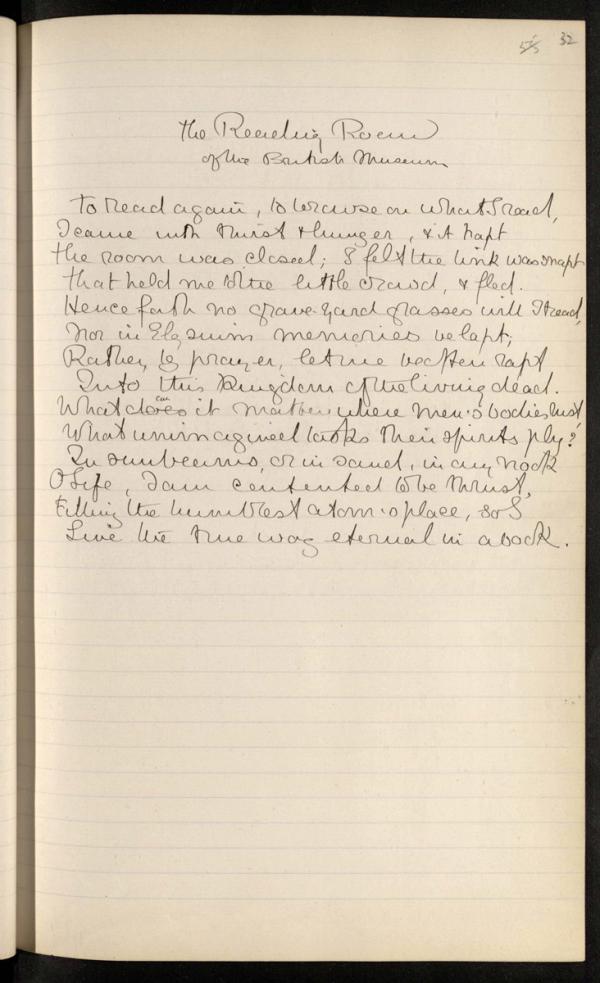 32
the Reading Room
of the British Museum
To read again, to browse on what I read,
I came with thirst & hunger, & it hapt
The room was closed; I felt the link was snapt
That held me to the little crowd, & fled.
Henceforth no grave-yard grasses will I tread,
Nor in Elysium's memories be lapt;
Rather, by prayer, let me be often rapt
Into this Kingdom of the living dead.
What does can it matter where men's bodies lust
What unimagined tasks their spirits ply?
In sunbeams, or in sand, in any nook
O Life, I am contented to be thrust,
Filling the humblest atom's place, so I
Live the true way eternal in a book.